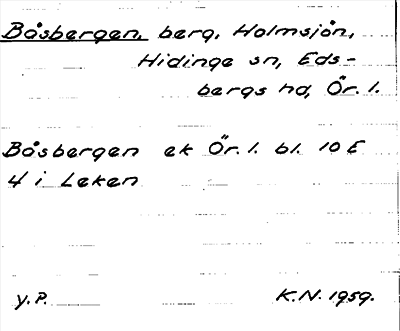 Båsbergen berg, Holmsjön,
Hidinge sn, Eds-
bergs hd, Ör. l.
Båsbergen ek Ör. l. bl. 10 E
4 i Leken
y.P.
K.N. 1959.